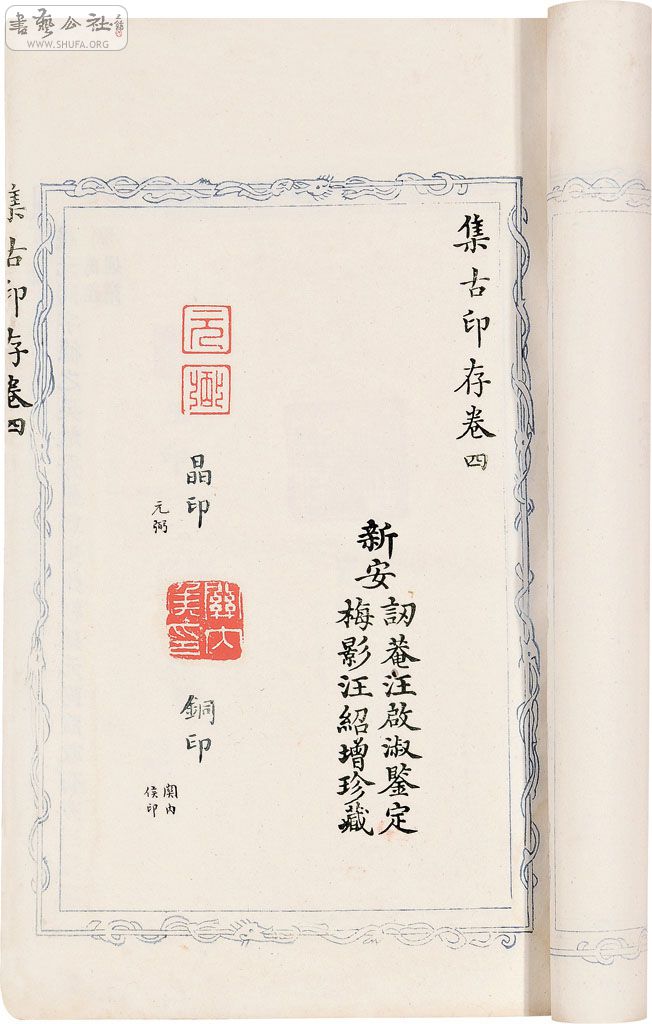 書藝公社
WWW.SHUFA.ORG
集古印存卷四
新安
訒菴汪啟淑鑒定
梅影汪紹增珍藏
元
弼
晶印
元弼
關內
矦印
銅印
関內
侯印
集古印存卷四